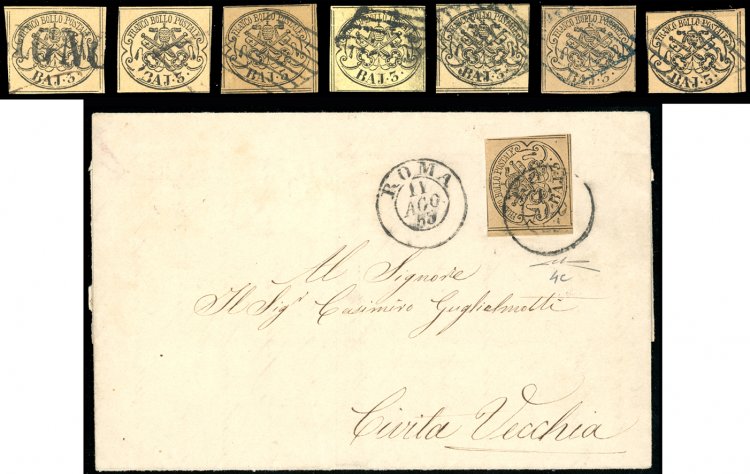 FRANCO BOLLO POSTALE
BAJ. 3
FRANCO BOLLO POSTALE
BAJ. 3
FRANCO BOLLO POSTALE
BAJ. 3
FRANCO BOLLO POSTALE
BAJ. 3
FRANCO BOLLO POSTALE
BAJ. 3
FRANCO BOLLO POSTALE
BAJ. 3
FRANCO BOLLO POSTALE
BAJ. 3
FRANCO BOLLO POSTALE
BAJ. 3
ROMA
11
AGO
Al Signore
Il Sigr Casimiro Guglielmotti
Civita Vecchia
4c